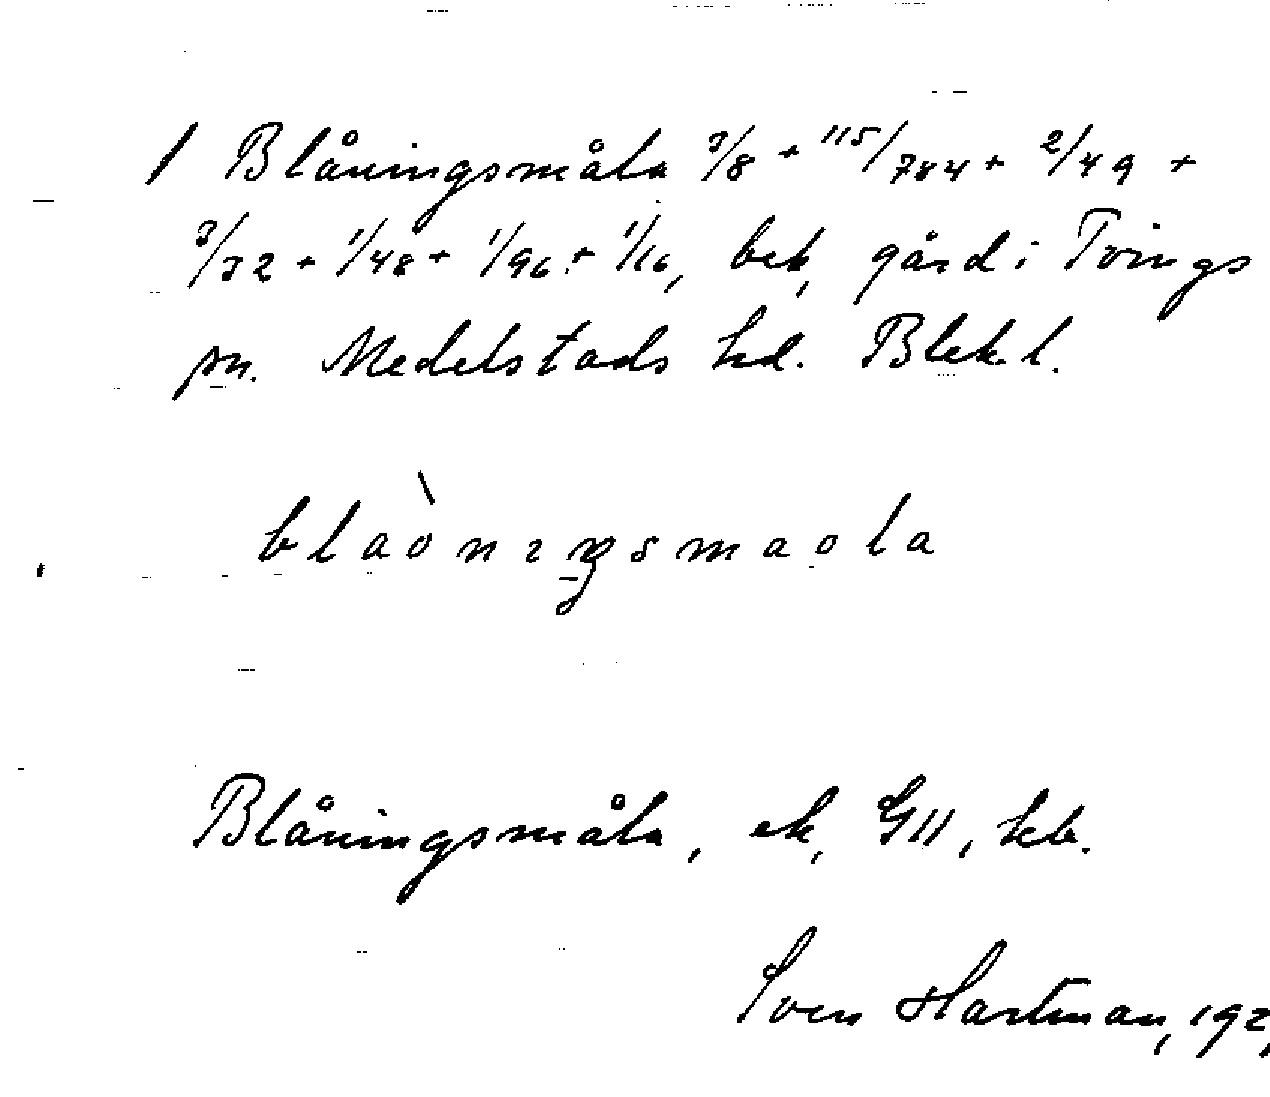 1 Blåningsmåla 3/8 + 115/784 + 2/49 +
3/32 + 1/48 + 1/96 + 1/16, bek, gård i Tvings
sn. Medelstads hd. Blek. l.
blaònıŋsmaola
Blåningsmåla, ek, GII, hb.
Sven Hartman, 192